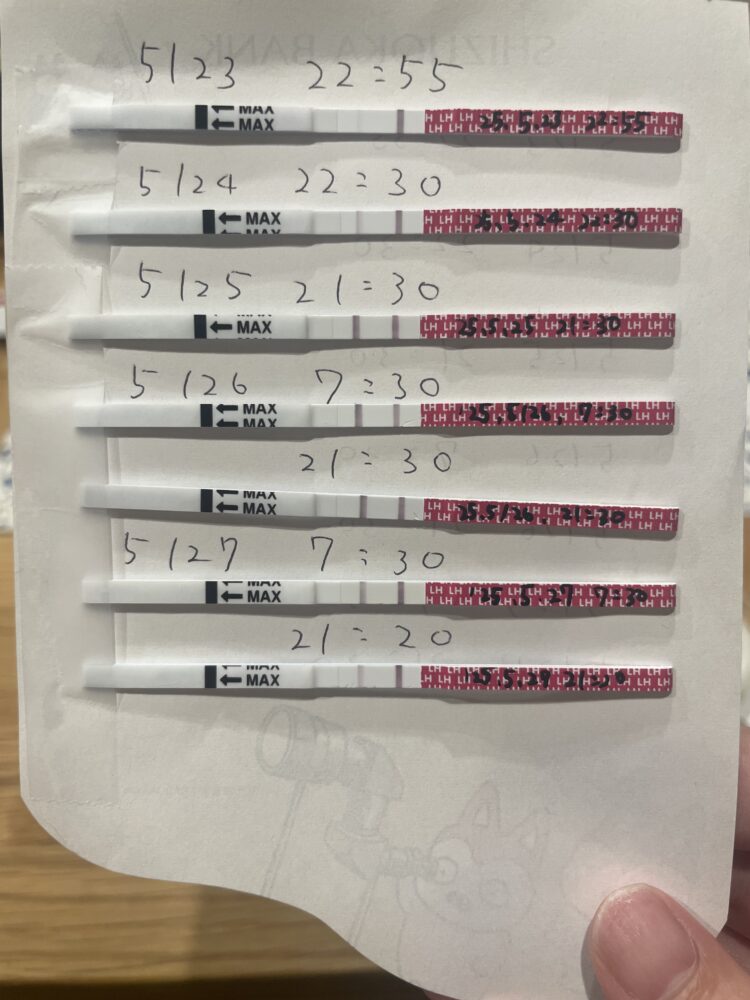 SHIZUOKA BANK
5/23 22:55
MAX
MAX
LH LH LH 25.5.23 22:55 LH LH
5/24 22:30
MAX
MAX
LH LH 25.5.24 22:30
5/25 21:30
MAX
LH LH 25.5.25 21:30 LH LH
5/26 7:30
MAX
MAX
LH LH '25.5/26. 7:30 LH LH
21:30
MAX
MAX
LH LH 25.5/26. 21:30 LH LH
5/27 7:30
MAX
MAX
LH LH '25.5.27 7:30 LH LH
21:20
MAX
MAX
LH LH LH LH